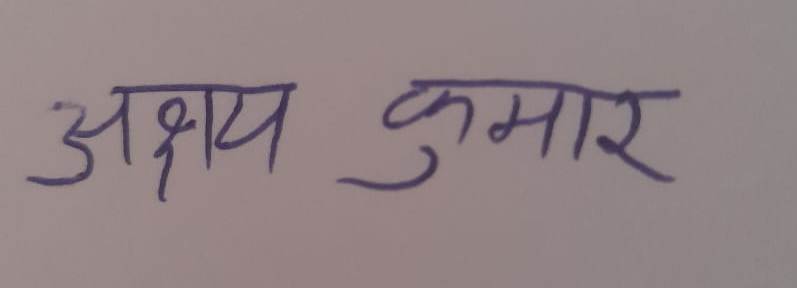 अक्षय कुमार